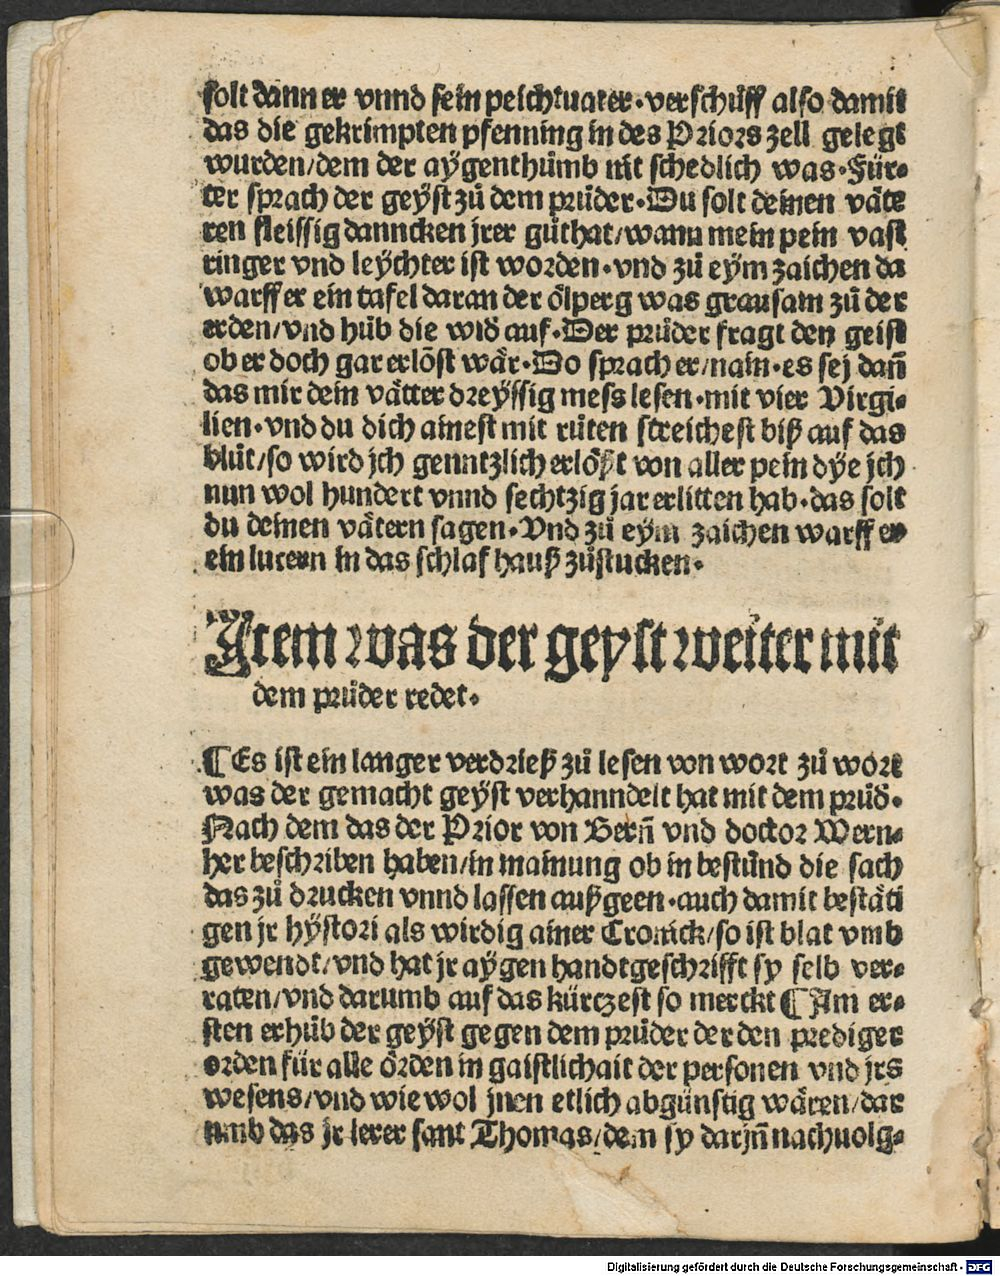 solt dann er vnnd sein peichtuater·verschuͤff also damit
das die gekrimpten pfenning in des Priors zell gelegt
wurden/dem der aÿgenthůmb nit schedlich was·Für⸗
ter sprach der geÿst zů dem průder·Du solt deinen väte
ren fleissig danncken jrer gůthat/wann mein pein vast
ringer vnd leÿchter ist worden·vnd zů eÿm zaichen da
warff er ein tafel daran der ölperg was grausam zů der
erden/vnd hůb die wid̃ auf·Der průder fragt den geist
ob er doch gar erlöst wär·Do sprach er/nain·es sej dañ
das mir dein vätter dreÿssig mess lesen·mit vier Virgi⸗
lien·vnd du dich ainest mit růten streichest biß auf das
blůt/so wird jch genntzlich erlößt von aller pein dÿe jch
nun wol hundert vnnd sechtzig jar erlitten hab·das solt
du deinen vätern sagen·Vnd zů eÿm zaichen warff er
ein lucern in das schlaf hauß zůstucken·
Ytem was der geyst weiter mit
dem průder redet·
¶Es ist ein langer verdrieß zů lesen von wort zů wort
was der gemacht geÿst verhanndelt hat mit dem průd̃·
Nach dem das der Prior von Berñ vnd doctor Wern⸗
her beschriben haben/in mainung ob in bestůnd die sach
das zů drucken vnnd lassen außgeen·auch damit bestäti
gen jr hÿstori als wirdig ainer Cronick/so ist blat vmb
gewendt/vnd hat jr aÿgen handtgeschrifft sy selb ver⸗
raten/vnd darumb auf das kürtzest so merckt ¶Am er⸗
sten erhůb der geÿst gegen dem průder der den prediger
orden für alle örden in gaistlichait der personen vnd jrs
wesens/vnd wiewol jnen etlich abgünstig wären/dar
umb das jr lerer sant Thomas/dem sy darjñ nachuolg⸗
Digitalisierung gefördert durch die Deutsche Forschungsgemeinschaft - DFG